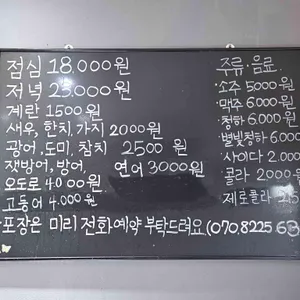 점심 18.000원
저녁 23.000원
계란 1500원
새우, 한치, 가지 2000원
광어, 도미, 참치 2500원
잿방어, 방어, 연어 3000원
오도로 4.000원
고등어 4.000원
포장은 미리 전화예약 부탁드려요 (070.8225
주류·음료
·소주 5000원
·맥주 6.000원
·청하 6.000원
·별빛청하 6.000
·사이다 2.000
·콜라 2000원
·제로콜라